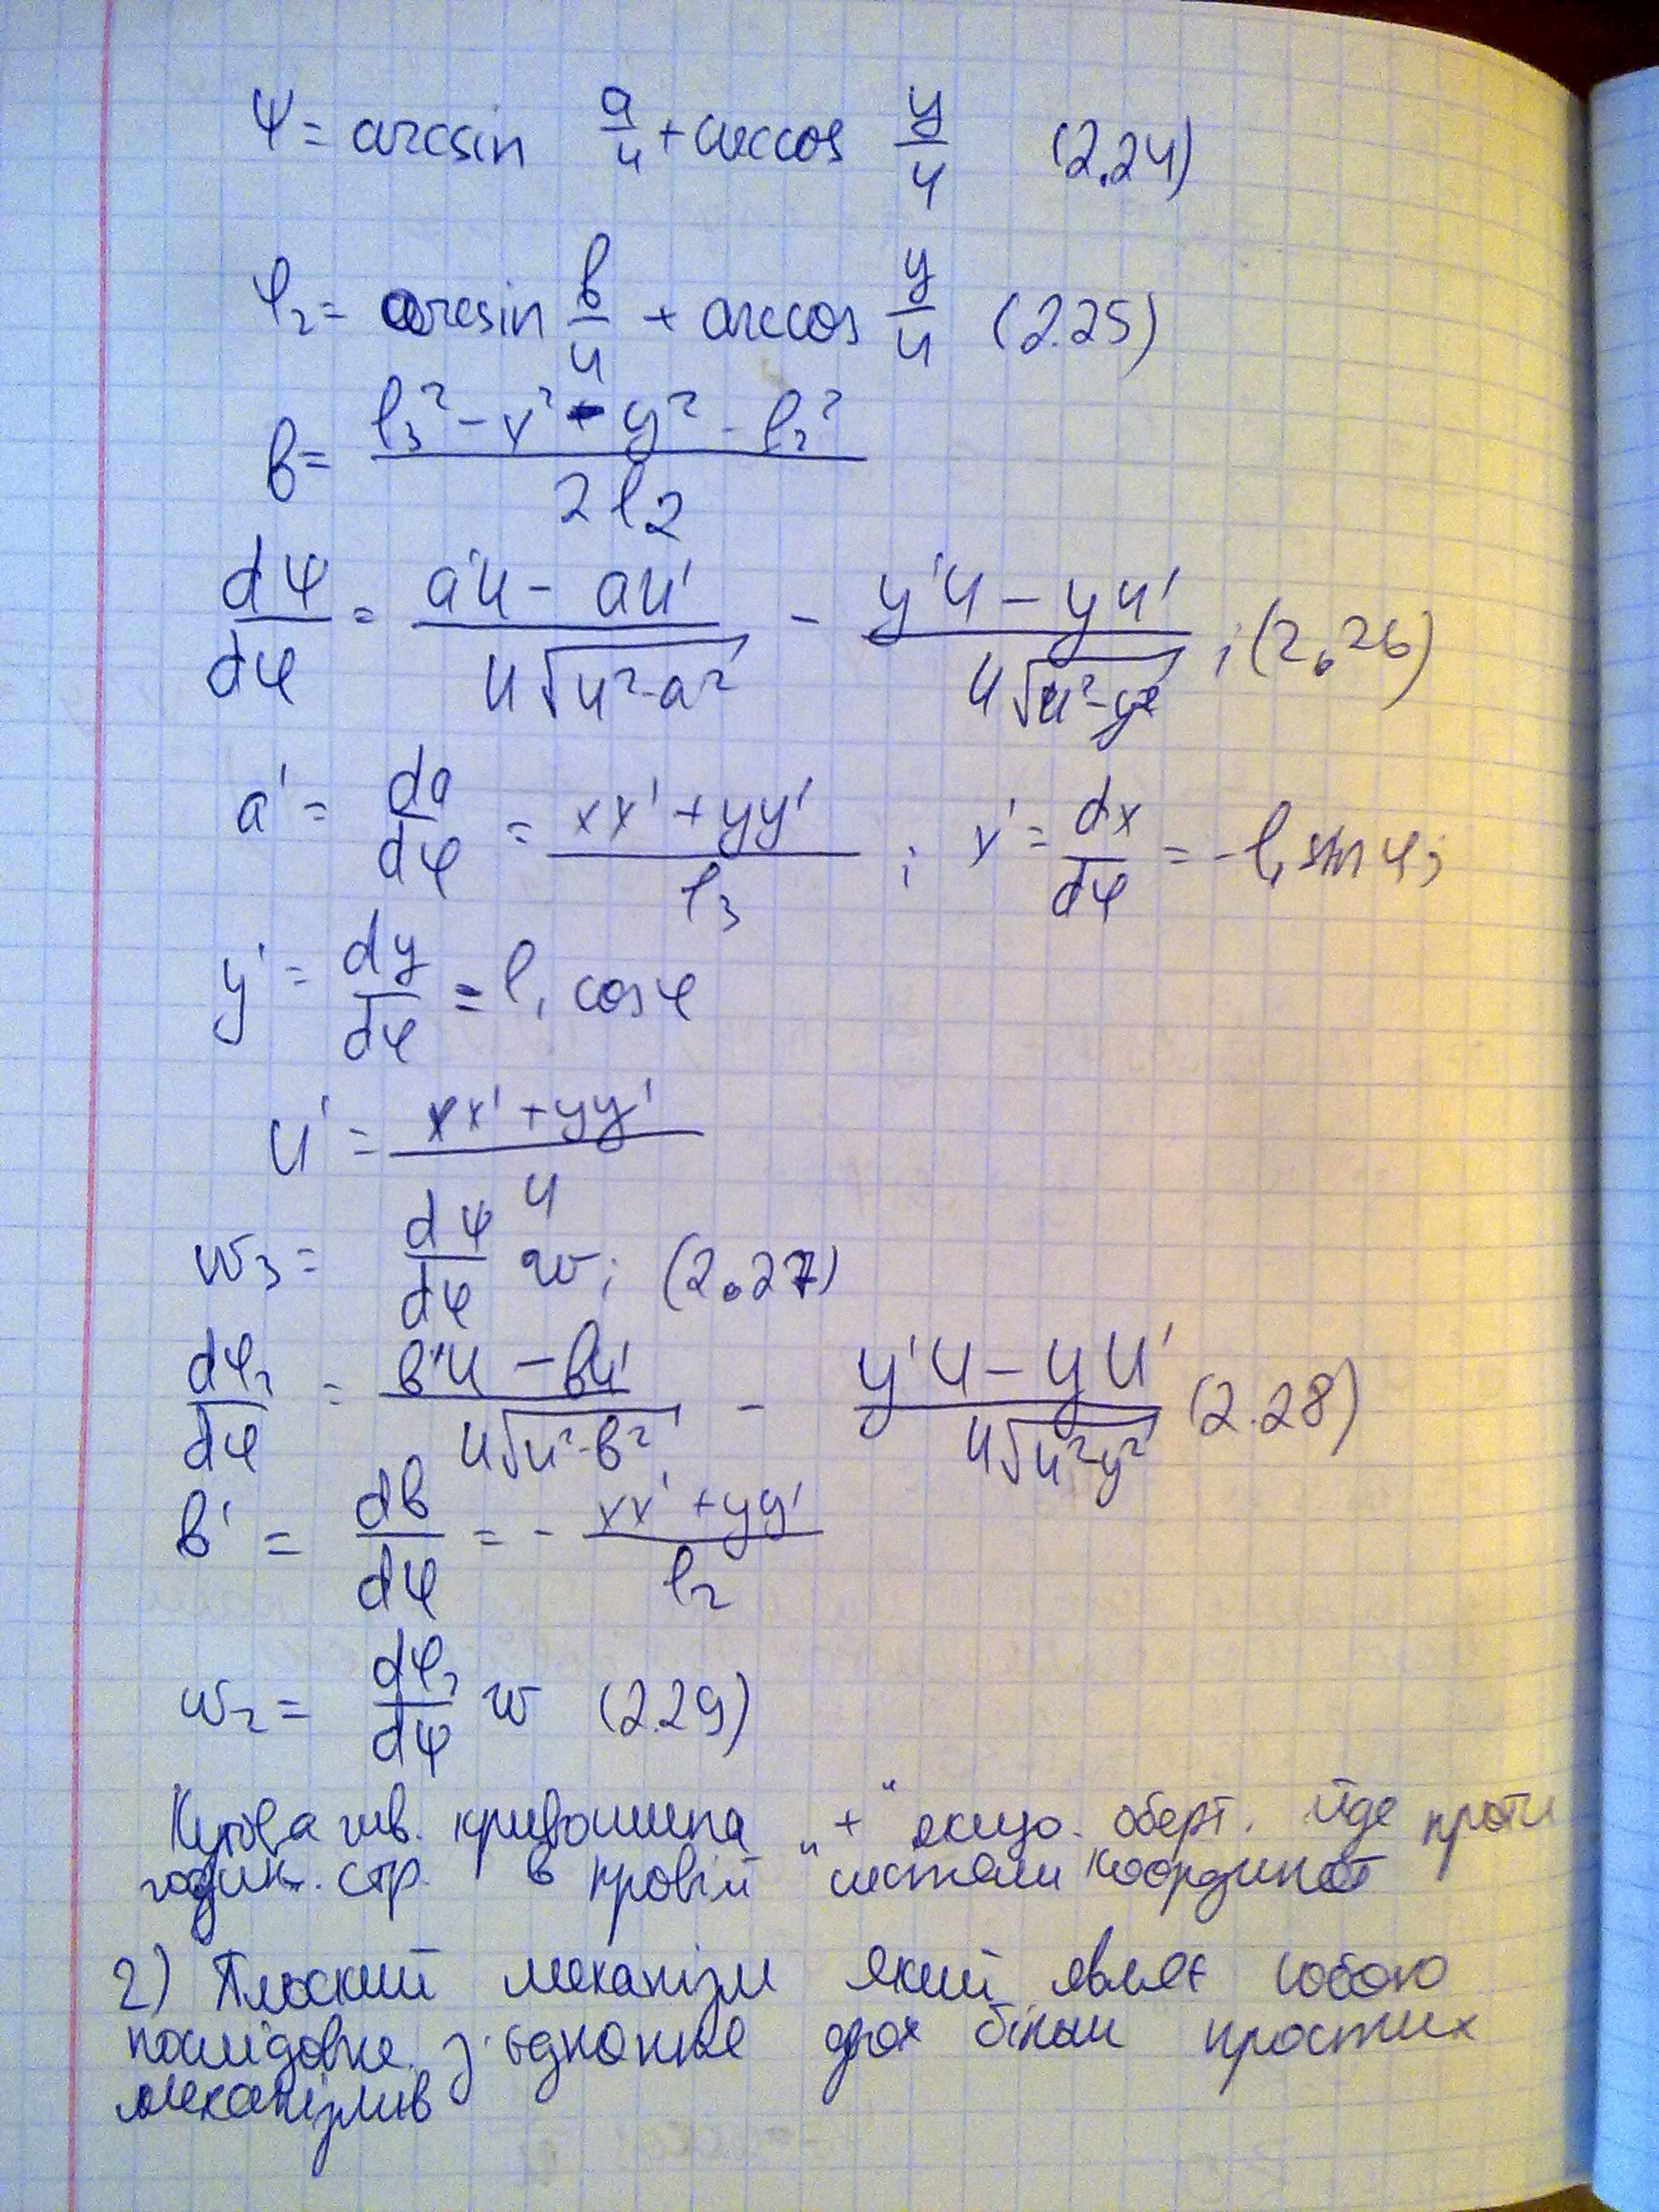 ψ = arcsin a/u + arccos y/u (2.24)
φ₂ = arcsin в/u + arccos y/u (2.25)
в = (l₃² - x² - y² - l₂²)/(2l₂)
dψ/dφ = (a'u - au')/(u√(u²-a²)) - (y'u - yu')/(u√(u²-y²)) ; (2.26)
a' = da/dφ = (xx' + yy')/l₃ ; x' = dx/dφ = -l₁ sin φ;
y' = dy/dφ = l₁ cos φ
u' = (xx' + yy')/u
w₃ = dψ/dφ w; (2.27)
dφ₂/dφ = (в'u - вu')/(u√(u²-в²)) - (y'u - yu')/(u√(u²-y²)) (2.28)
в' = dв/dφ = - (xx' + yy')/l₂
w₂ = dφ₂/dφ w (2.29)
Кутова шв. кривошипа „+" якщо. оберт. йде проти
годин. стр. в правій системі координат
2) Плоский механізм який являє собою
послідовне з'єднання двох більш простих
механізмів